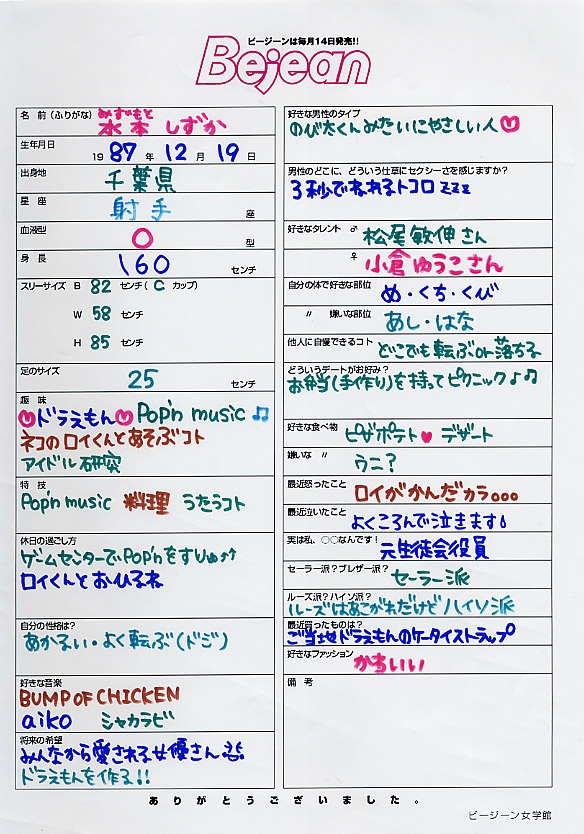 ビージーンは毎月14日発売!!
Bejean
名 前(ふりがな) みずもと
水本 しずか
生年月日
1987年 12月 19日
出身地
千葉県
星 座
射手 座
血液型
O 型
身 長
160 センチ
スリーサイズ B 82 センチ( C カップ)
W 58 センチ
H 85 センチ
足のサイズ
25 センチ
趣 味
ドラえもん Pop'n music ♫
ネコのロイくんとあそぶコト
アイドル研究
特 技
Pop'n music 料理 うたうコト
休日の過ごし方
ゲームセンターでPop'nをすりゅ♪♪
ロイくんとおひるね
自分の性格は?
あかるい・よく転ぶ(ドジ)
好きな音楽
BUMP OF CHICKEN
aiko シャカラビ
将来の希望
みんなから愛される女優さん
ドラえもんを作る!!
好きな男性のタイプ
のび太くんみたいにやさしい人
男性のどこに、どういう仕草にセクシーさを感じますか?
3秒でねれるトコロ zzz
好きなタレント ♂ 松尾敏伸さん
♀ 小倉ゆうこさん
自分の体で好きな部位
め・くち・くび
〃 嫌いな部位
あし・はな
他人に自慢できるコト
どこでも転ぶor落ちる
どういうデートがお好み?
お弁当(手作り)を持ってピクニック♪♫
好きな食べ物
ピザポテト♥デザート
嫌いな 〃
ウニ?
最近怒ったこと
ロイがかんだカラ。。。
最近泣いたこと
よくころんで泣きます
実は私、○○なんです!
元生徒会役員
セーラー派?ブレザー派?
セーラー派
ルーズ派?ハイソ派?
ルーズはあこがれだけどハイソ派
最近買ったものは?
ご当地ドラえもんのケータイストラップ
好きなファッション
かわいい
備 考
ありがとうございました。
ビージーン女学館